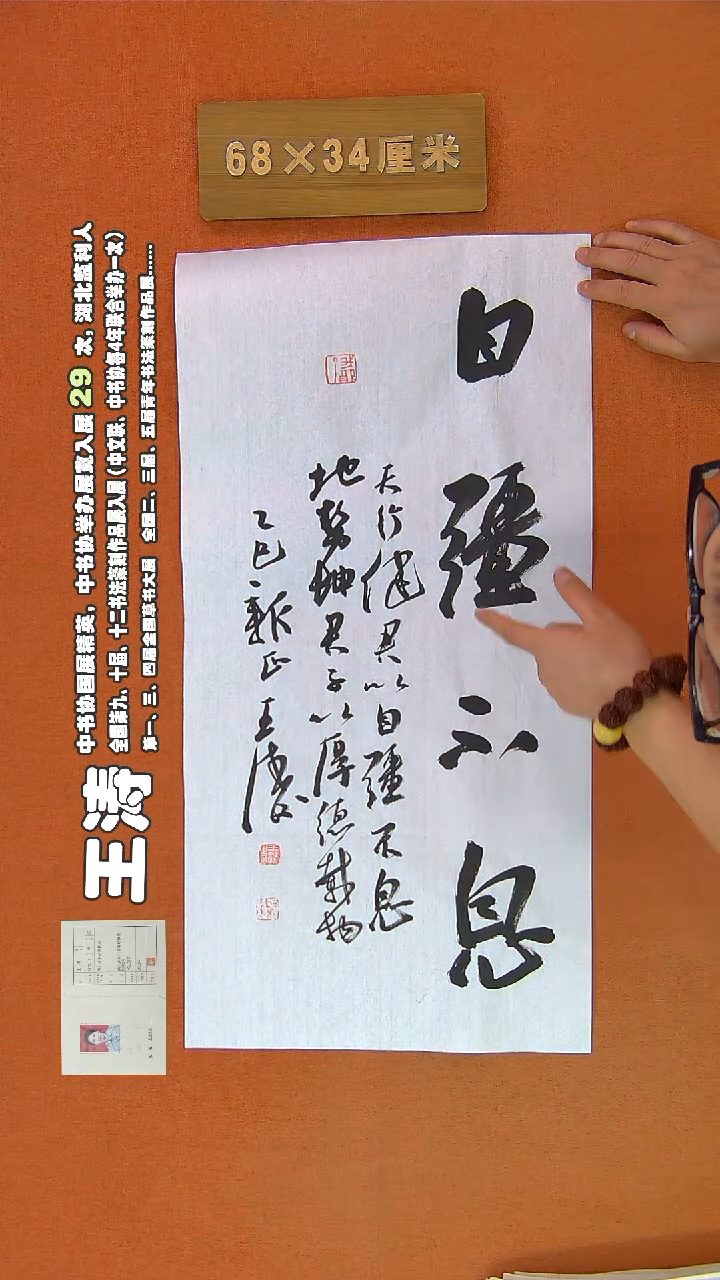 68×34厘米
自疆不息
天行健君以自疆不息
地势坤君子以厚德载物
乙巳新正王涛
王涛
中书协国展精英，中书协举办展赛入展29次，湖北监利人
全国第九、十届、十二书法篆刻作品展入展（中文联、中书协每4年联合举办一次）
第一、三、四届全国草书大展 全国二、三届、五届青年书法篆刻作品展……